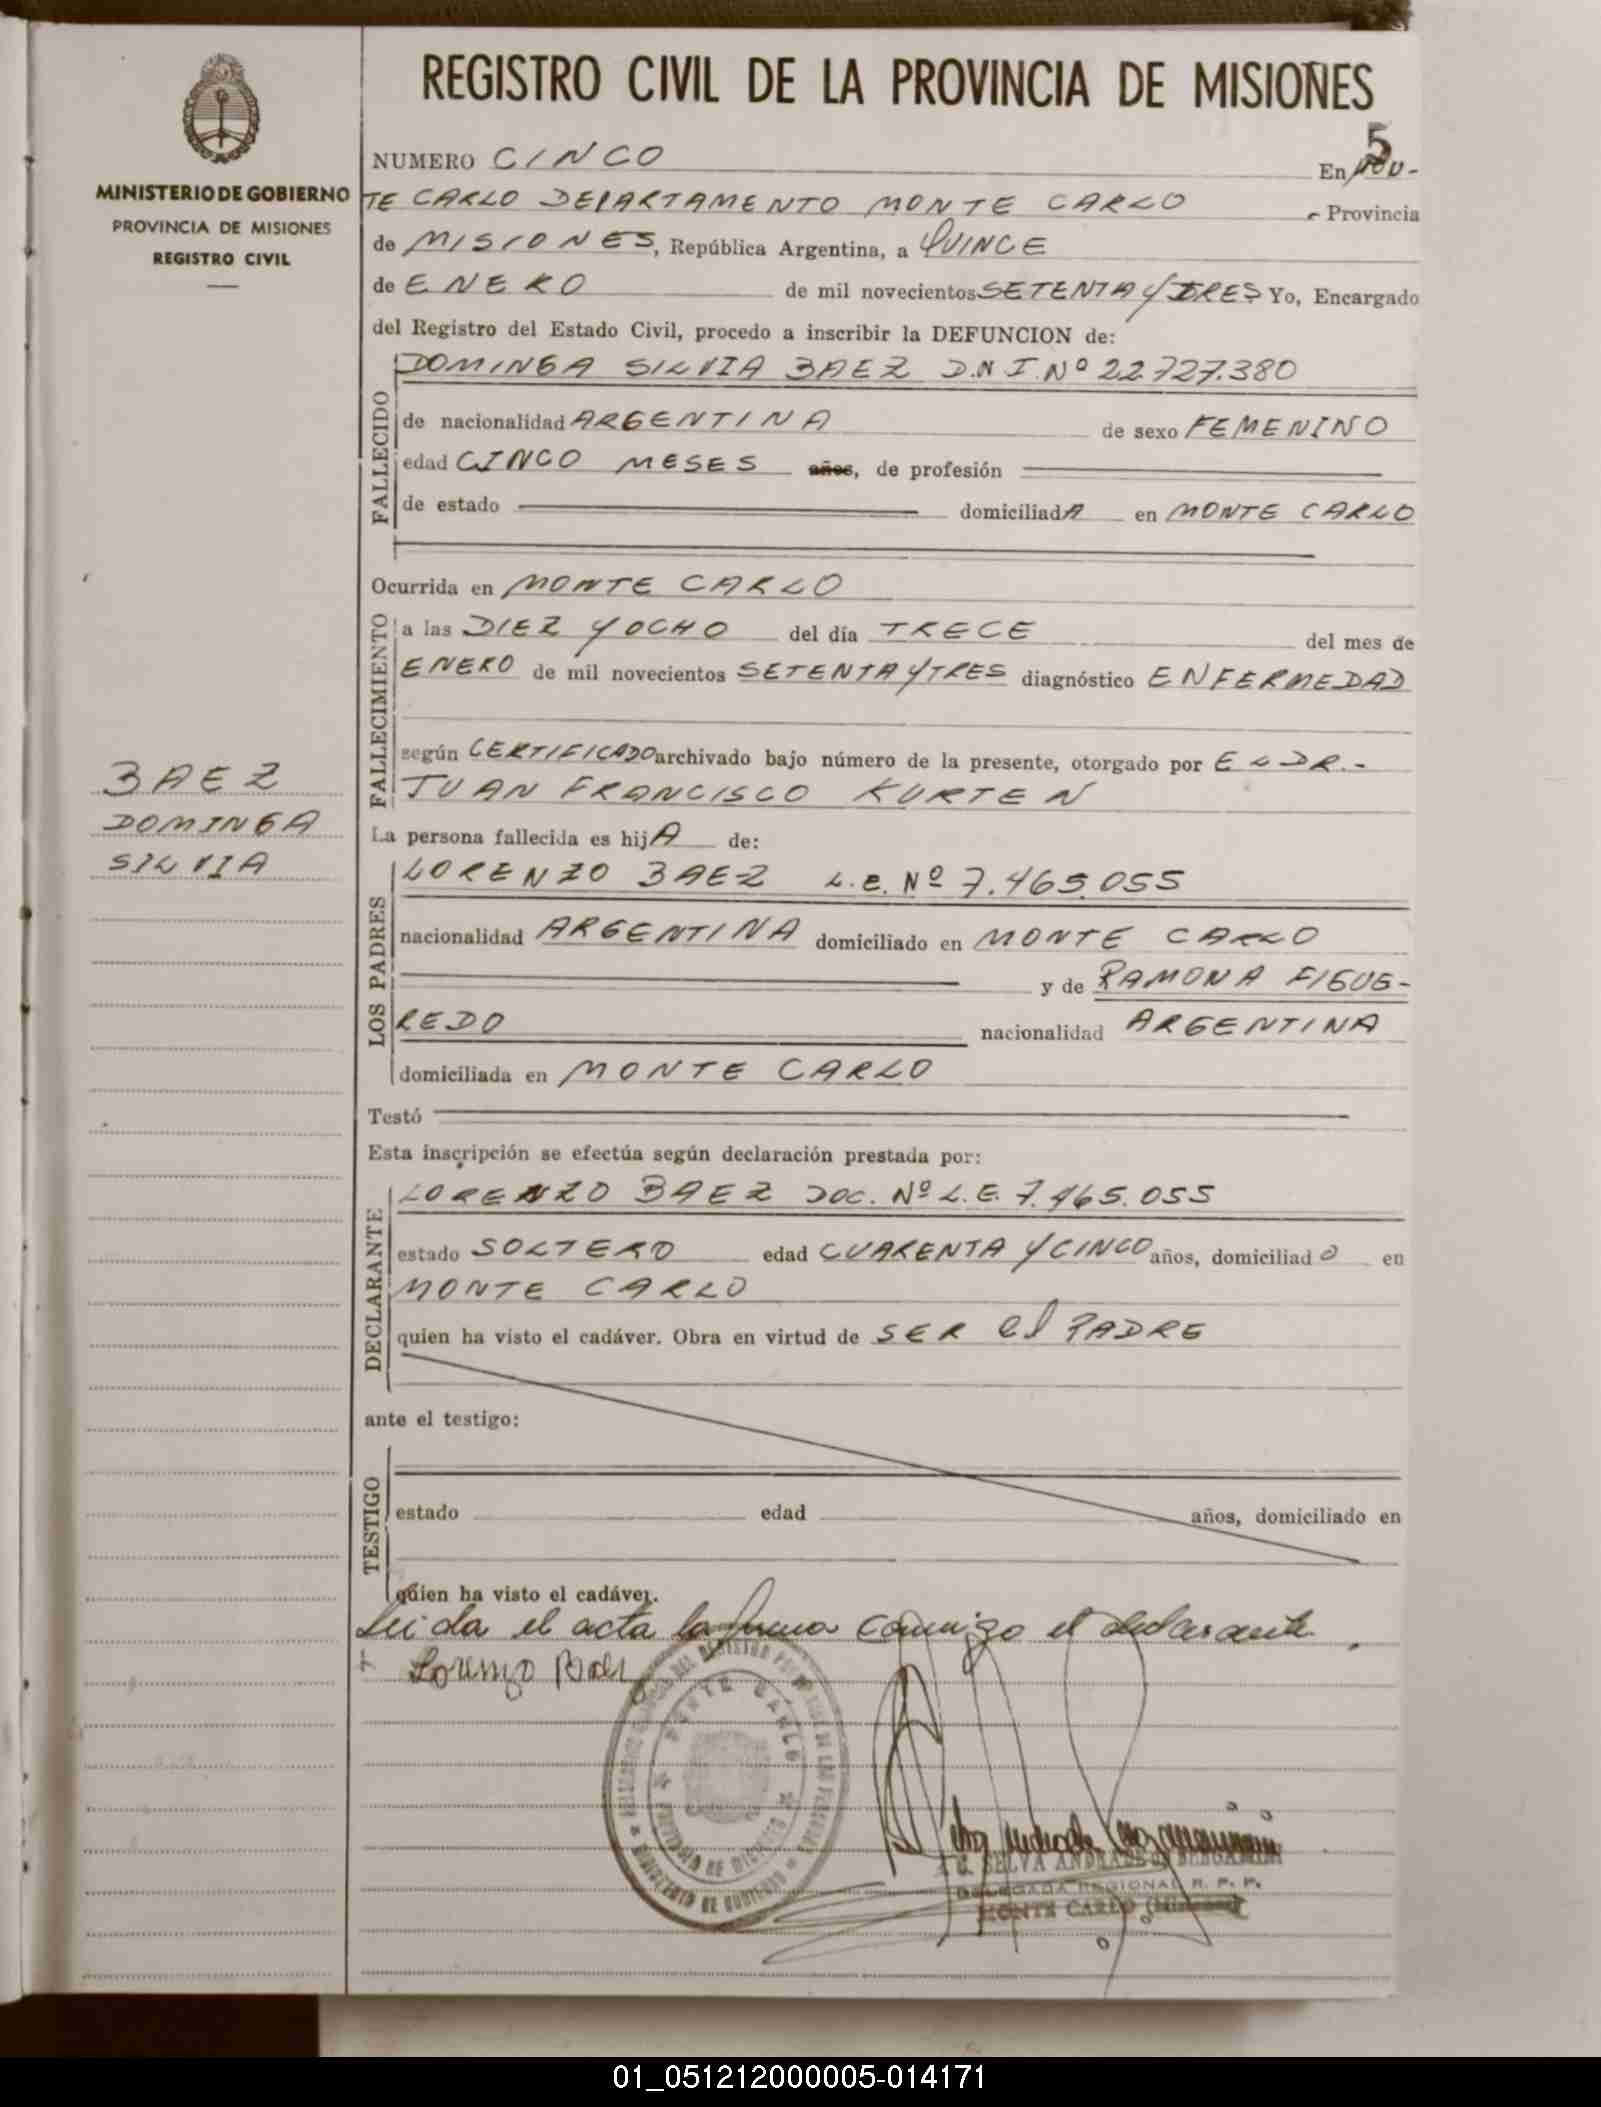 REGISTRO CIVIL DE LA PROVINCIA DE MISIONES
5
MINISTERIO DE GOBIERNO
PROVINCIA DE MISIONES
REGISTRO CIVIL
NUMERO CINCO En MON-
TE CARLO DEPARTAMENTO MONTE CARLO - Provincia
de MISIONES, República Argentina, a QUINCE
de ENERO de mil novecientos SETENTA Y TRES Yo, Encargado
del Registro del Estado Civil, procedo a inscribir la DEFUNCION de:
FALLECIDO
DOMINGA SILVIA BAEZ D.N.I. Nº 22.727.380
de nacionalidad ARGENTINA de sexo FEMENINO
edad CINCO MESES años, de profesión
de estado domiciliadA en MONTE CARLO
Ocurrida en MONTE CARLO
FALLECIMIENTO
a las DIEZ Y OCHO del día TRECE del mes de
ENERO de mil novecientos SETENTA Y TRES diagnóstico ENFERMEDAD
según CERTIFICADO archivado bajo número de la presente, otorgado por EL DR.-
JUAN FRANCISCO KURTEN
BAEZ
DOMINGA
SILVIA
La persona fallecida es hijA de:
LOS PADRES
LORENZO BAEZ L.E. Nº 7.465.055
nacionalidad ARGENTINA domiciliado en MONTE CARLO
y de RAMONA FIGUE-
REDO nacionalidad ARGENTINA
domiciliada en MONTE CARLO
Testó
Esta inscripción se efectúa según declaración prestada por:
DECLARANTE
LORENZO BAEZ DOC. Nº L.E. 7.465.055
estado SOLTERO edad CUARENTA Y CINCO años, domiciliado en
MONTE CARLO
quien ha visto el cadáver. Obra en virtud de SER el PADRE
ante el testigo:
TESTIGO
estado edad años, domiciliado en
quien ha visto el cadáver.
Leida el acta la firma conmigo el declarante.
Lorenzo Baez
MONTE CARLO
PROVINCIA DE MISIONES
MINISTERIO DE GOBIERNO
DELEGADA REGIONAL R. P. P.
MONTE CARLO (Misiones)
01_051212000005-014171